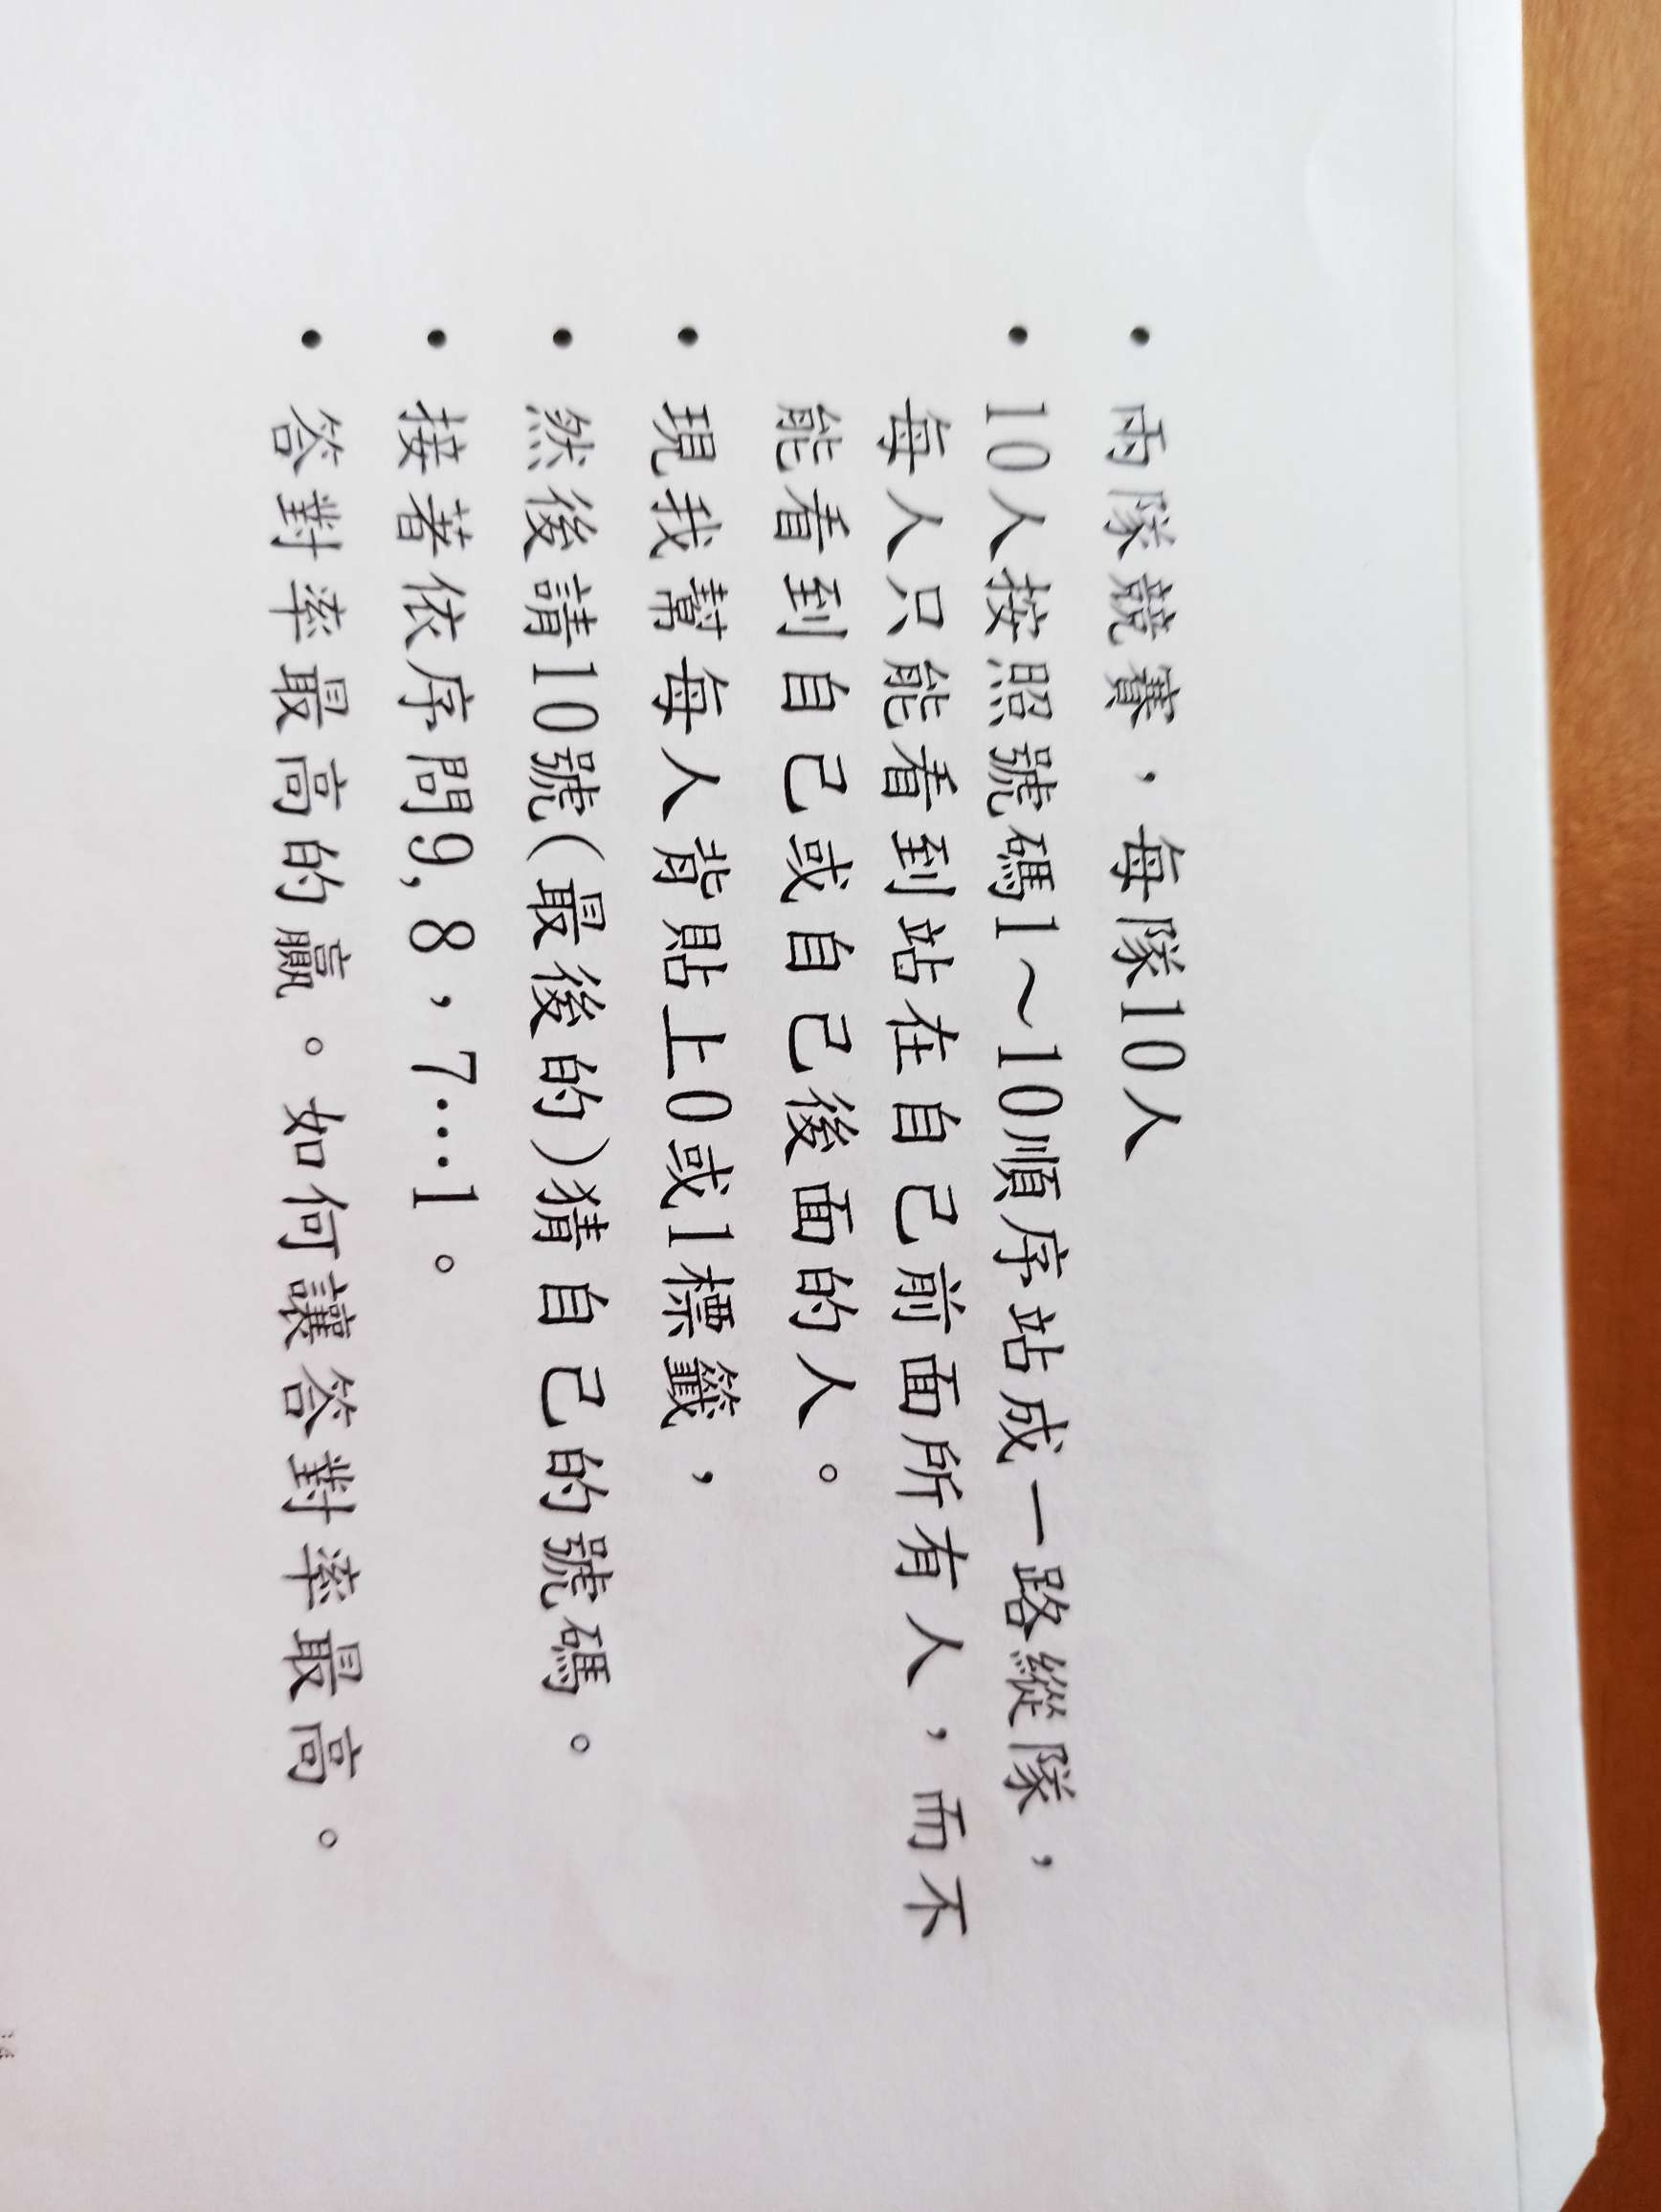 • 兩隊競賽，每隊10人
• 10人按照號碼1～10順序站成一路縱隊，
每人只能看到站在自己前面所有人，而不
能看到自己或自己後面的人。
• 現我幫每人背貼上0或1標籤，
• 然後請10號(最後的)猜自己的號碼。
• 接著依序問9,8，7…1。
• 答對率最高的贏。如何讓答對率最高。